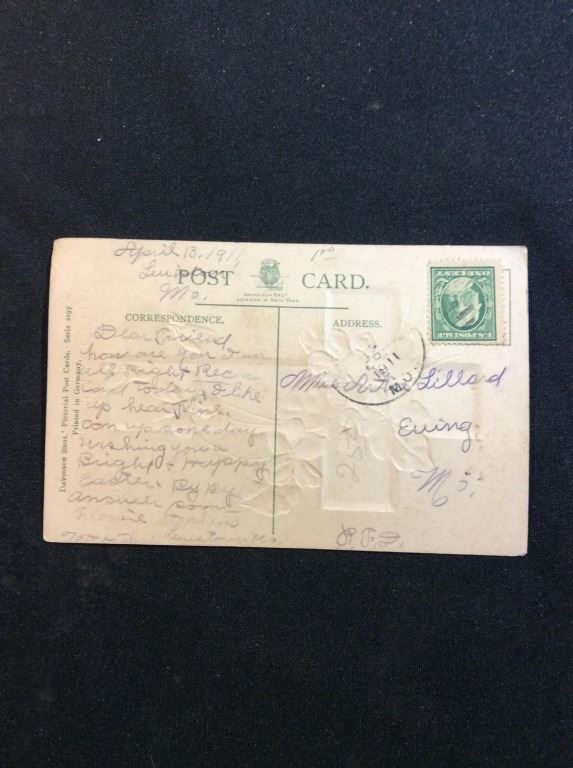 April 13, 1911
Mo.
1.00
POST CARD.
DAVIDSON BROS
LONDON & NEW YORK
CORRESPONDENCE.
ADDRESS.
Davidson Bros.' Pictorial Post Cards, Serie 2197.
Printed in Germany.
Dear Friend
how are you I am
all Right Rec
card today I like
up hear fine.
com up some day.
Wishing you a
Bright & Happy
Easter. By By
answer soon
Lewistown Mo.
Miss Lillard
Ewing
Mo.
R.F.D.
252
11
MO.
U.S. POSTAGE
ONE CENT